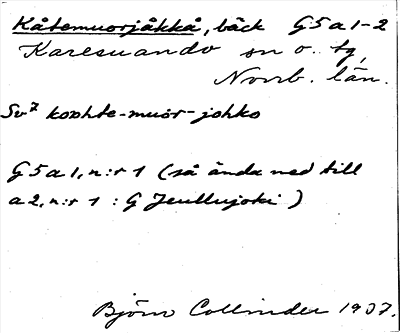 Kåtemuorjåkkå, bäck G5a1-2
Karesuando sn o. tg,
Norrb. län.
Sv⁷ kophte-muör-johko
G5a1, n:r 1 (så ända ned till
a2, n:r 1 : G Jeullujoki)
Björn Collinder 1937.